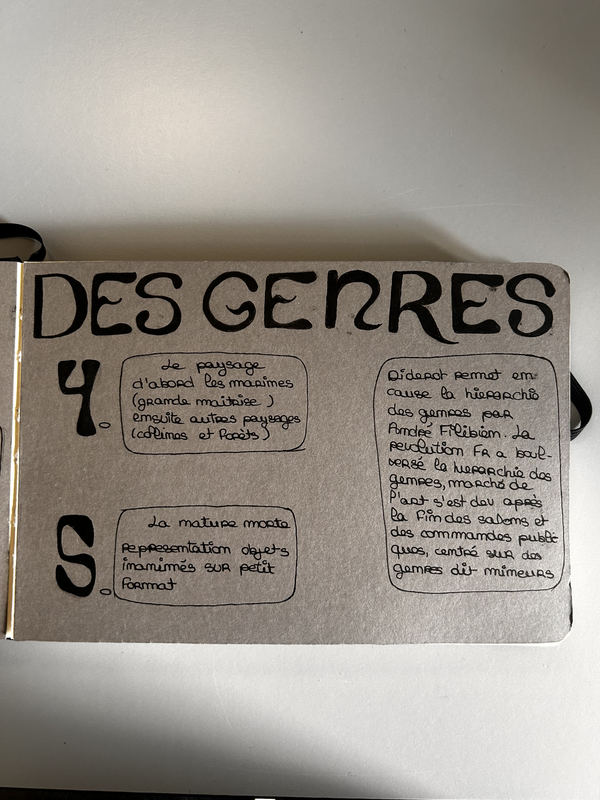 DES GENRES
4.
Le paysage
d'abord les marines
(grande maitrise)
ensuite autres paysages
(collines et forêts)
5.
La nature morte
representation objets
inanimés sur petit
format
Diderot remet en
cause la hierarchie
des genres par
André Filibien. La
revolution FR a boul-
versé la hierarchie des
genres, marché de
l'art s'est dev après
la fin des salons et
des commandes publi
ques, centré sur des
genres dit mineurs